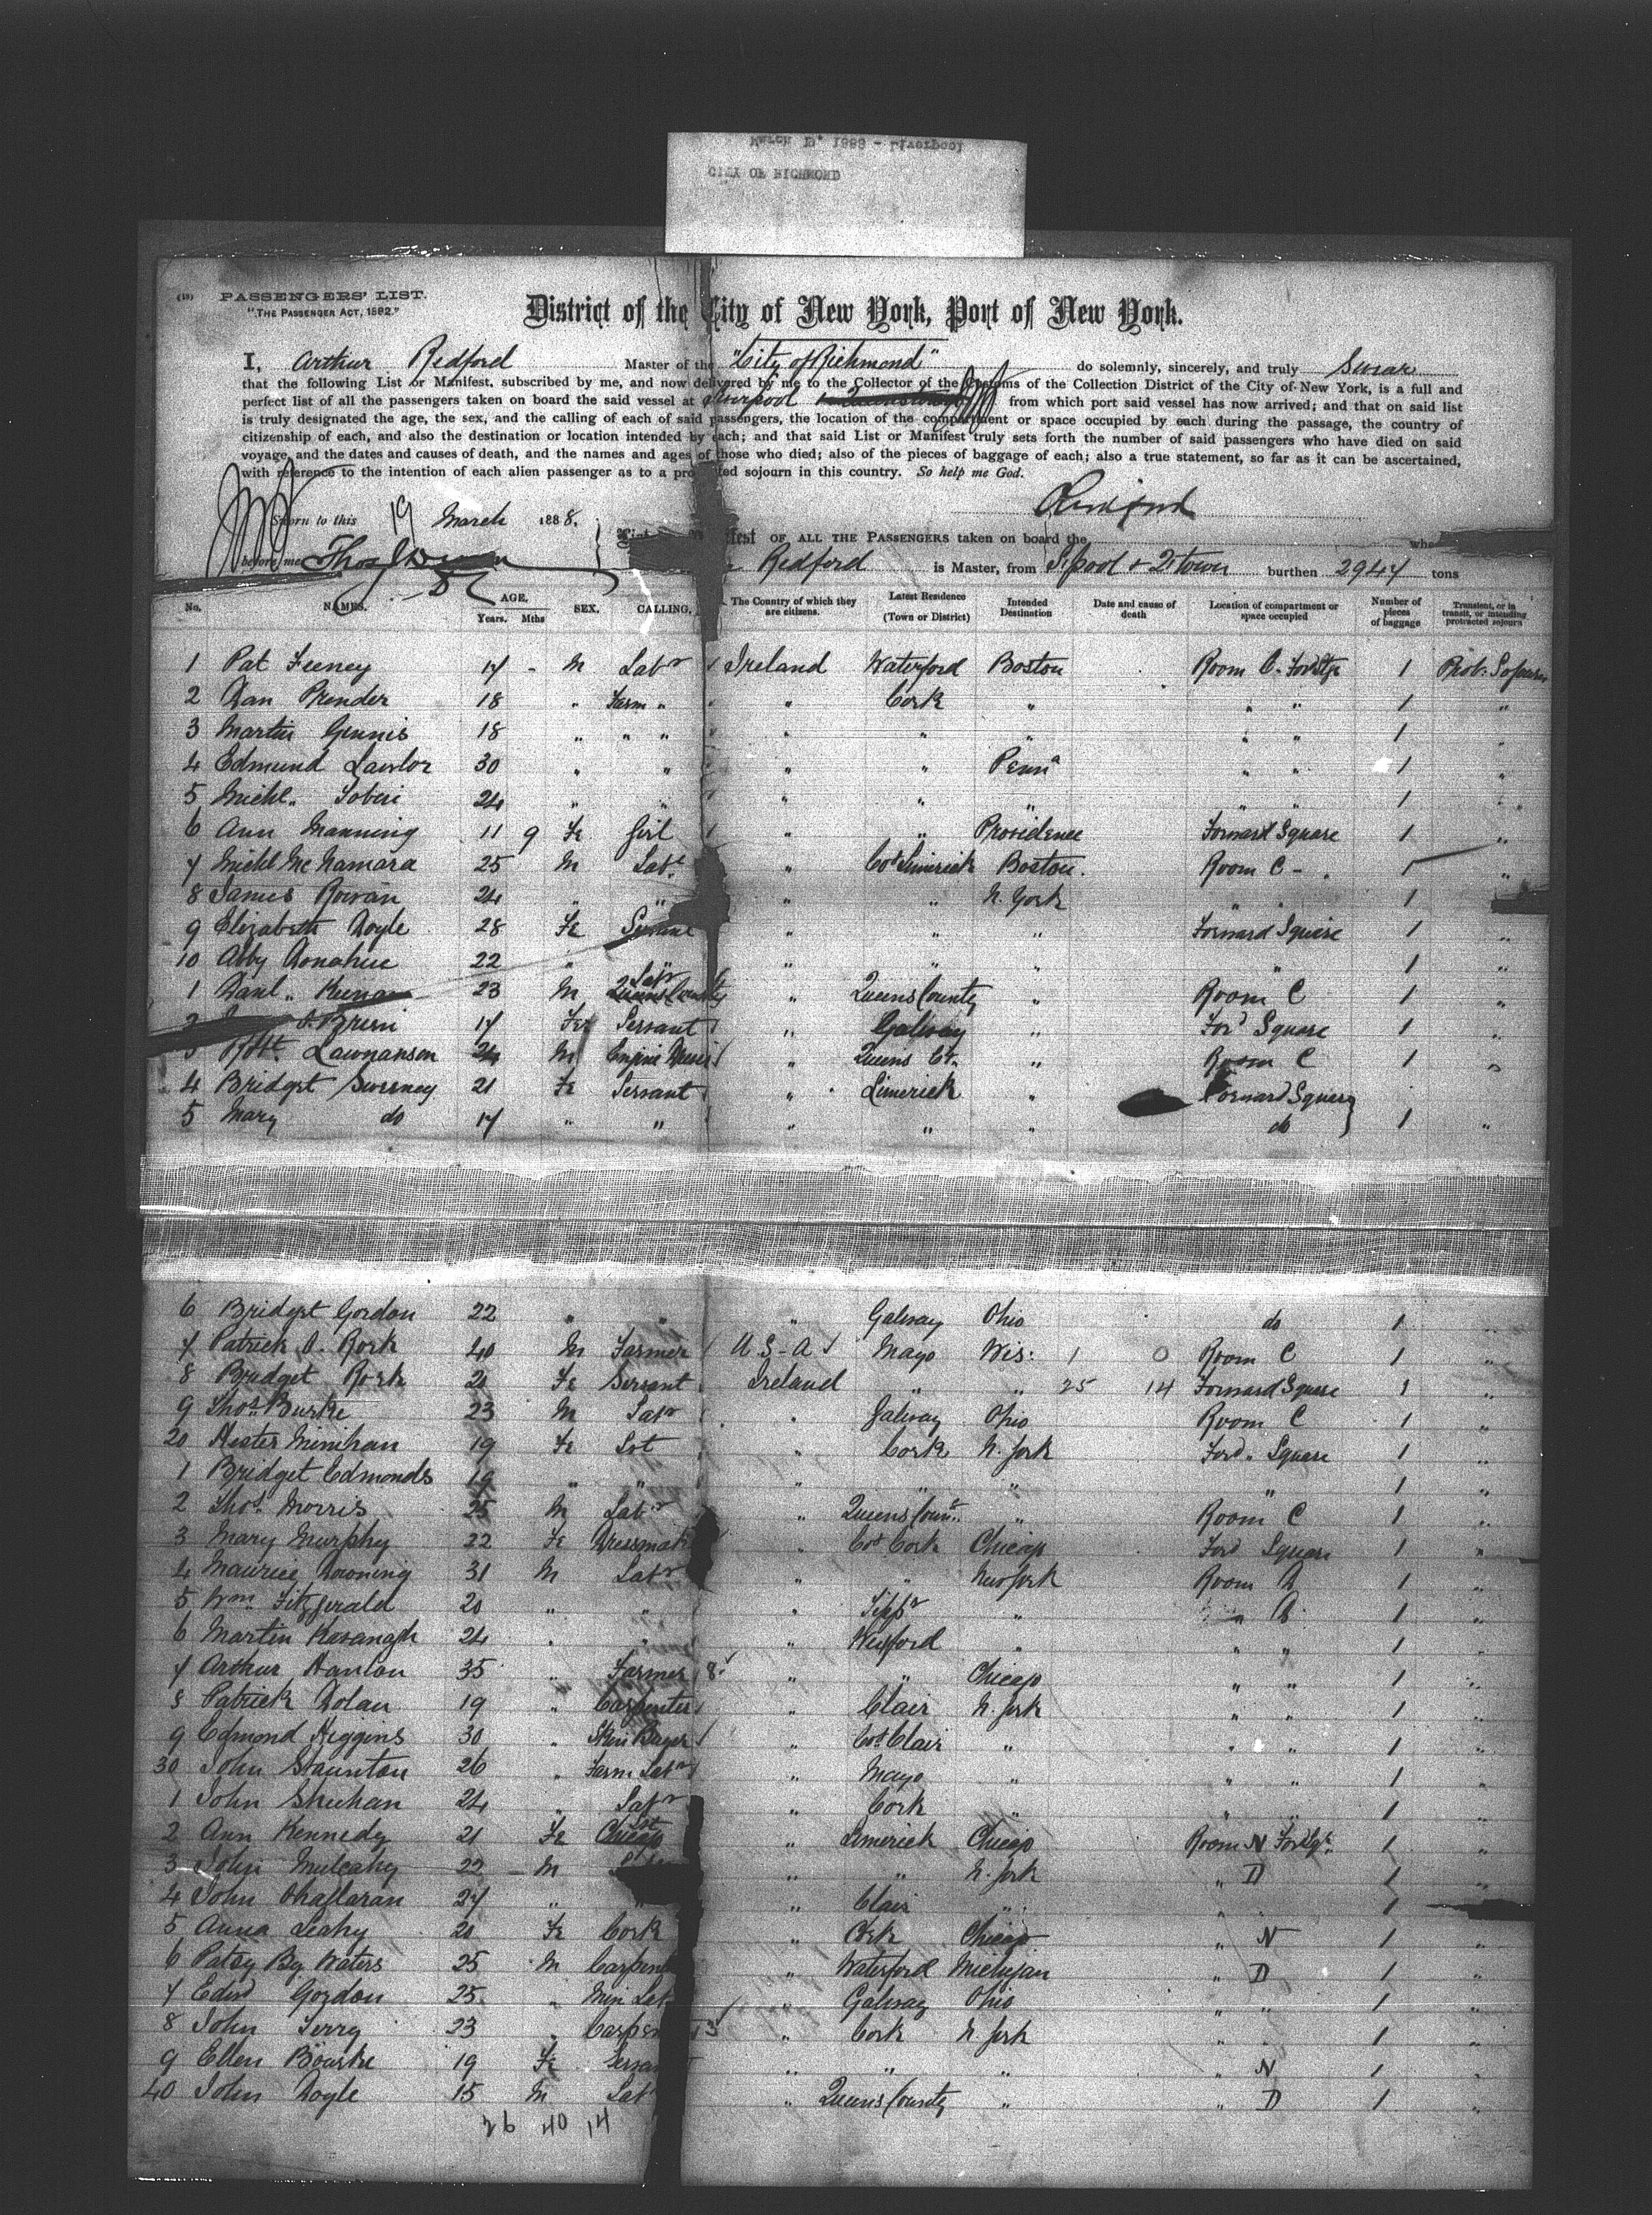 CITY OF RICHMOND
(19) PASSENGERS' LIST.
"THE PASSENGER ACT, 1882."
District of the City of New York, Port of New York.
I, Arthur Redford Master of the "City of Richmond" do solemnly, sincerely, and truly Swear
that the following List or Manifest, subscribed by me, and now delivered by me to the Collector of the Customs of the Collection District of the City of New York, is a full and
perfect list of all the passengers taken on board the said vessel at Liverpool from which port said vessel has now arrived; and that on said list
is truly designated the age, the sex, and the calling of each of said passengers, the location of the compartment or space occupied by each during the passage, the country of
citizenship of each, and also the destination or location intended by each; and that said List or Manifest truly sets forth the number of said passengers who have died on said
voyage, and the dates and causes of death, and the names and ages of those who died; also of the pieces of baggage of each; also a true statement, so far as it can be ascertained,
with reference to the intention of each alien passenger as to a protracted sojourn in this country. So help me God.
Sworn to this 19 March 1888.
before me
OF ALL THE PASSENGERS taken on board the
Redford is Master, from L'pool & Q'town burthen 2944 tons
No. NAMES. AGE. Years. Mths SEX. CALLING. The Country of which they are citizens. Latest Residence (Town or District) Intended Destination Date and cause of death Location of compartment or space occupied Number of pieces of baggage Transient, or in transit, or intending protracted sojourn
1 Pat Feeney 17 - M Labr Ireland Waterford Boston Room C. 1
2 Dan Prender 18 " Farm " " Cork " " " 1 "
3 Martin Gennis 18 " " " " " " " " 1 "
4 Edmund Lawlor 30 " " " " Penna " " 1 "
5 Michl. 24 " " " " " " " 1 "
6 Ann Manning 11 9 Fe Girl " " Providence Forward Square 1 "
7 Michl McNamara 25 M Labr " Co Limerick Boston. Room C - 1 "
8 James Rowan 24 " " " " N. York " " 1
9 Elizabeth Doyle 28 Fe Servant " " " Forward Square 1 "
10 Abby Donahue 22 " " " " " " 1 "
1 Danl. Keenan 23 M Labr " Queens County " Room C 1 "
O'Brien 17 Fe Servant " Galway " For'd Square 1 "
3 Robt. Lawnanson 24 M Engine " Queens Co. " Room C 1 "
4 Bridget Sweeney 21 Fe Servant " Limerick " Forward Square
5 Mary do 17 " " " " " do 1 "
6 Bridget Gordon 22 " " " Galway Ohio do 1 "
7 Patrick O. Rork 40 M Farmer U.S-A Mayo Wis: 1 0 Room C 1 "
8 Bridget Rork 20 Fe Servant Ireland " " 25 14 Forward Square 1 "
9 Thos. Burke 23 M Labr " Galway Ohio Room C 1 "
20 Hester Minihan 19 Fe Svt " Cork N. York Ford. Square 1 "
1 Bridget Edmonds 19 " " " " " " 1 "
2 Thos. Morris 25 M Labr " Queens Coun. " Room C 1 "
3 Mary Murphy 22 Fe Dressmak " Co Cork Chicago Ford Square 1 "
4 Maurice Downing 31 M Labr " " New York Room 1 "
5 Wm. Fitzgerald 20 " " " Tippr " " 1 "
6 Martin Kavanagh 24 " " " Wexford " " " 1 "
7 Arthur Hanlon 35 " Farmer 8 " " Chicago " " 1 "
8 Patrick Dolan 19 " Carpenter " Clair N. York " " 1 "
9 Edmond Higgins 30 " Skin Buyer " Co Clair " " " 1 "
30 John Staunton 26 " Farm Labr " Mayo " " " 1 "
1 John Sheehan 24 " Labr " Cork " " " 1 "
2 Ann Kennedy 21 Fe Svt Chicago " Limerick Chicago Room N 1 "
3 John Mulcahy 22 - M " " N. York " D 1 "
4 John Ohallaran 27 " " " Clair " " 1
5 Anna Leahy 20 Fe Cork " Cork Chicago " N 1 "
6 Patsy By Waters 25 M Carpen " Waterford Michigan " D 1 "
7 Edwd Gordon 25 " Min Lab " Galway Ohio " " 1 "
8 John Terry 23 " Carpen 3 " Cork N York " " 1 "
9 Ellen Bourke 19 Fe Servan " " " " N 1 "
40 John Doyle 15 M Lab " Queens County " " D 1 "
26 40 14